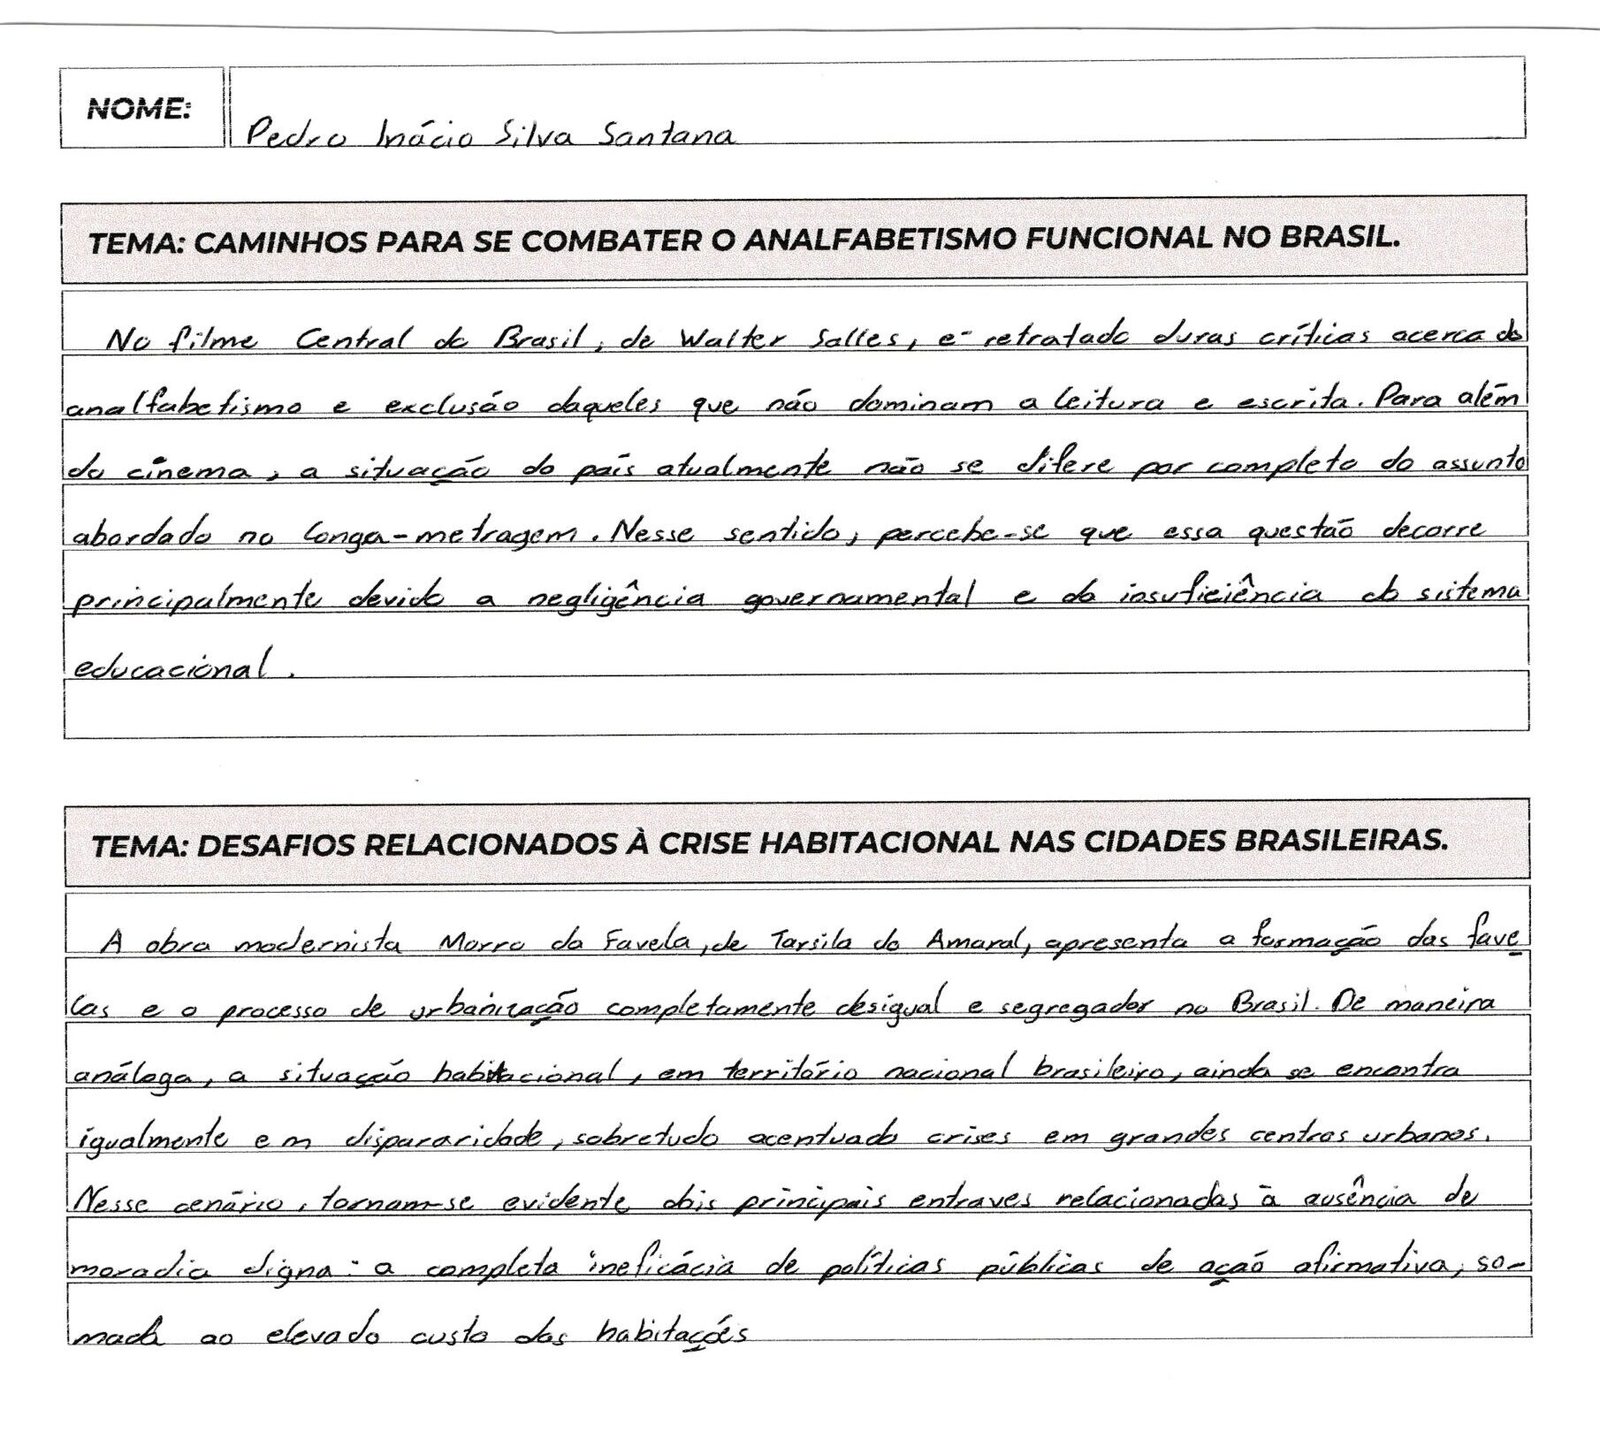 NOME:
Pedro Inácio Silva Santana
TEMA: CAMINHOS PARA SE COMBATER O ANALFABETISMO FUNCIONAL NO BRASIL.
No filme Central do Brasil, de Walter Salles, é retratado duras críticas acerca do
analfabetismo e exclusão daqueles que não dominam a leitura e escrita. Para além
do cinema, a situação do país atualmente não se difere por completo do assunto
abordado no longa-metragem. Nesse sentido, percebe-se que essa questão decorre
principalmente devido a negligência governamental e da insuficiência do sistema
educacional.
TEMA: DESAFIOS RELACIONADOS À CRISE HABITACIONAL NAS CIDADES BRASILEIRAS.
A obra modernista Morro da Favela, de Tarsila do Amaral, apresenta a formação das fave
las e o processo de urbanização completamente desigual e segregador no Brasil. De maneira
análoga, a situação habitacional, em território nacional brasileiro, ainda se encontra
igualmente em dispararidade, sobretudo acentuado crises em grandes centros urbanos.
Nesse cenário, tornam-se evidente dois principais entraves relacionadas à ausência de
moradia digna: a completa ineficácia de políticas públicas de ação afirmativa, so-
mada ao elevado custo das habitações